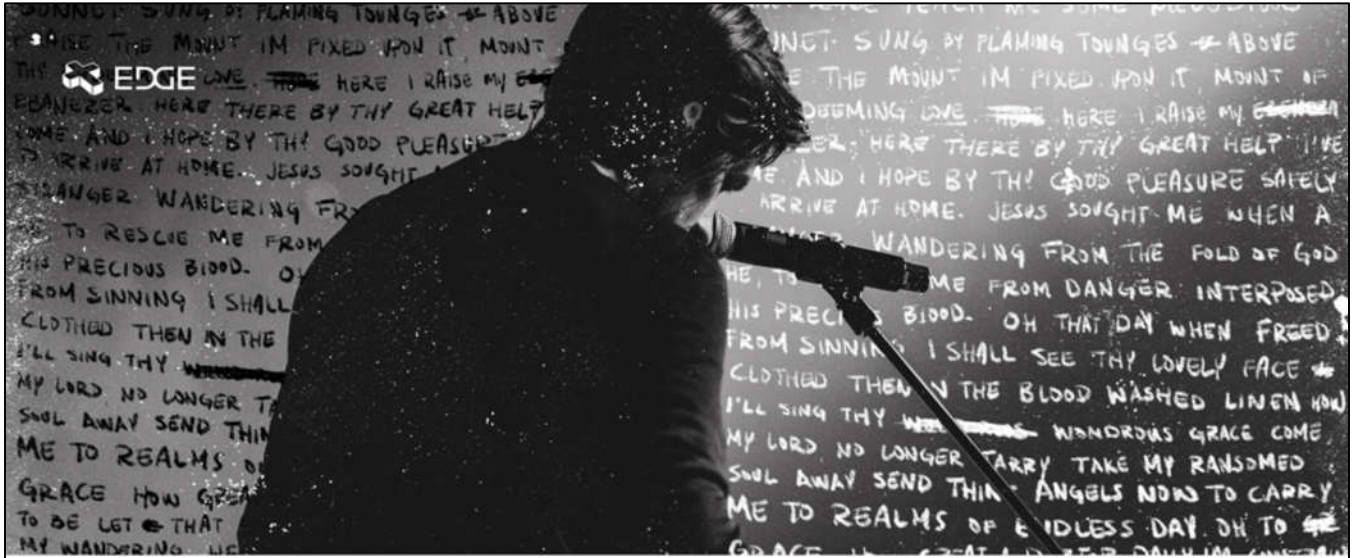 EDGE
SONNET SUNG BY FLAMING TOUNGES ABOVE
PRAISE THE MOUNT IM FIXED UPON IT MOUNT
THY LOVE HERE I RAISE MY
EBANEZER HERE THERE BY THY GREAT HELP
COME AND I HOPE BY THY GOOD PLEASURE
TO ARRIVE AT HOME. JESUS SOUGHT
STRANGER WANDERING FRO
TO RESCUE ME FROM
HIS PRECIOUS BLOOD. OH
FROM SINNING I SHALL
CLOTHED THEN IN THE
I'LL SING THY
MY LORD NO LONGER TA
SOUL AWAY SEND THIN
ME TO REALMS O
GRACE HOW GREA
TO BE LET THAT
MY WANDERING HE
TEACH ME SOME MELODIOUS
NNET. SUNG BY FLAMING TOUNGES ABOVE
E THE MOUNT IM FIXED UPON IT MOUNT OF
DEEMING LOVE HERE I RAISE MY
ZER. HERE THERE BY THY GREAT HELP I'VE
ME AND I HOPE BY THY GOOD PLEASURE SAFELY
ARRIVE AT HOME. JESUS SOUGHT ME WHEN A
NGER WANDERING FROM THE FOLD OF GOD
HE, TO ME FROM DANGER INTERPOSED
HIS PRECIOUS BLOOD. OH THAT DAY WHEN FREED
FROM SINNING I SHALL SEE THY LOVELY FACE
CLOTHED THEN IN THE BLOOD WASHED LINEN HOW
I'LL SING THY WONDROUS GRACE COME
MY LORD NO LONGER TARRY TAKE MY RANSOMED
SOUL AWAY SEND THINE ANGELS NOW TO CARRY
ME TO REALMS OF ENDLESS DAY OH TO
GRACE HOW GREAT